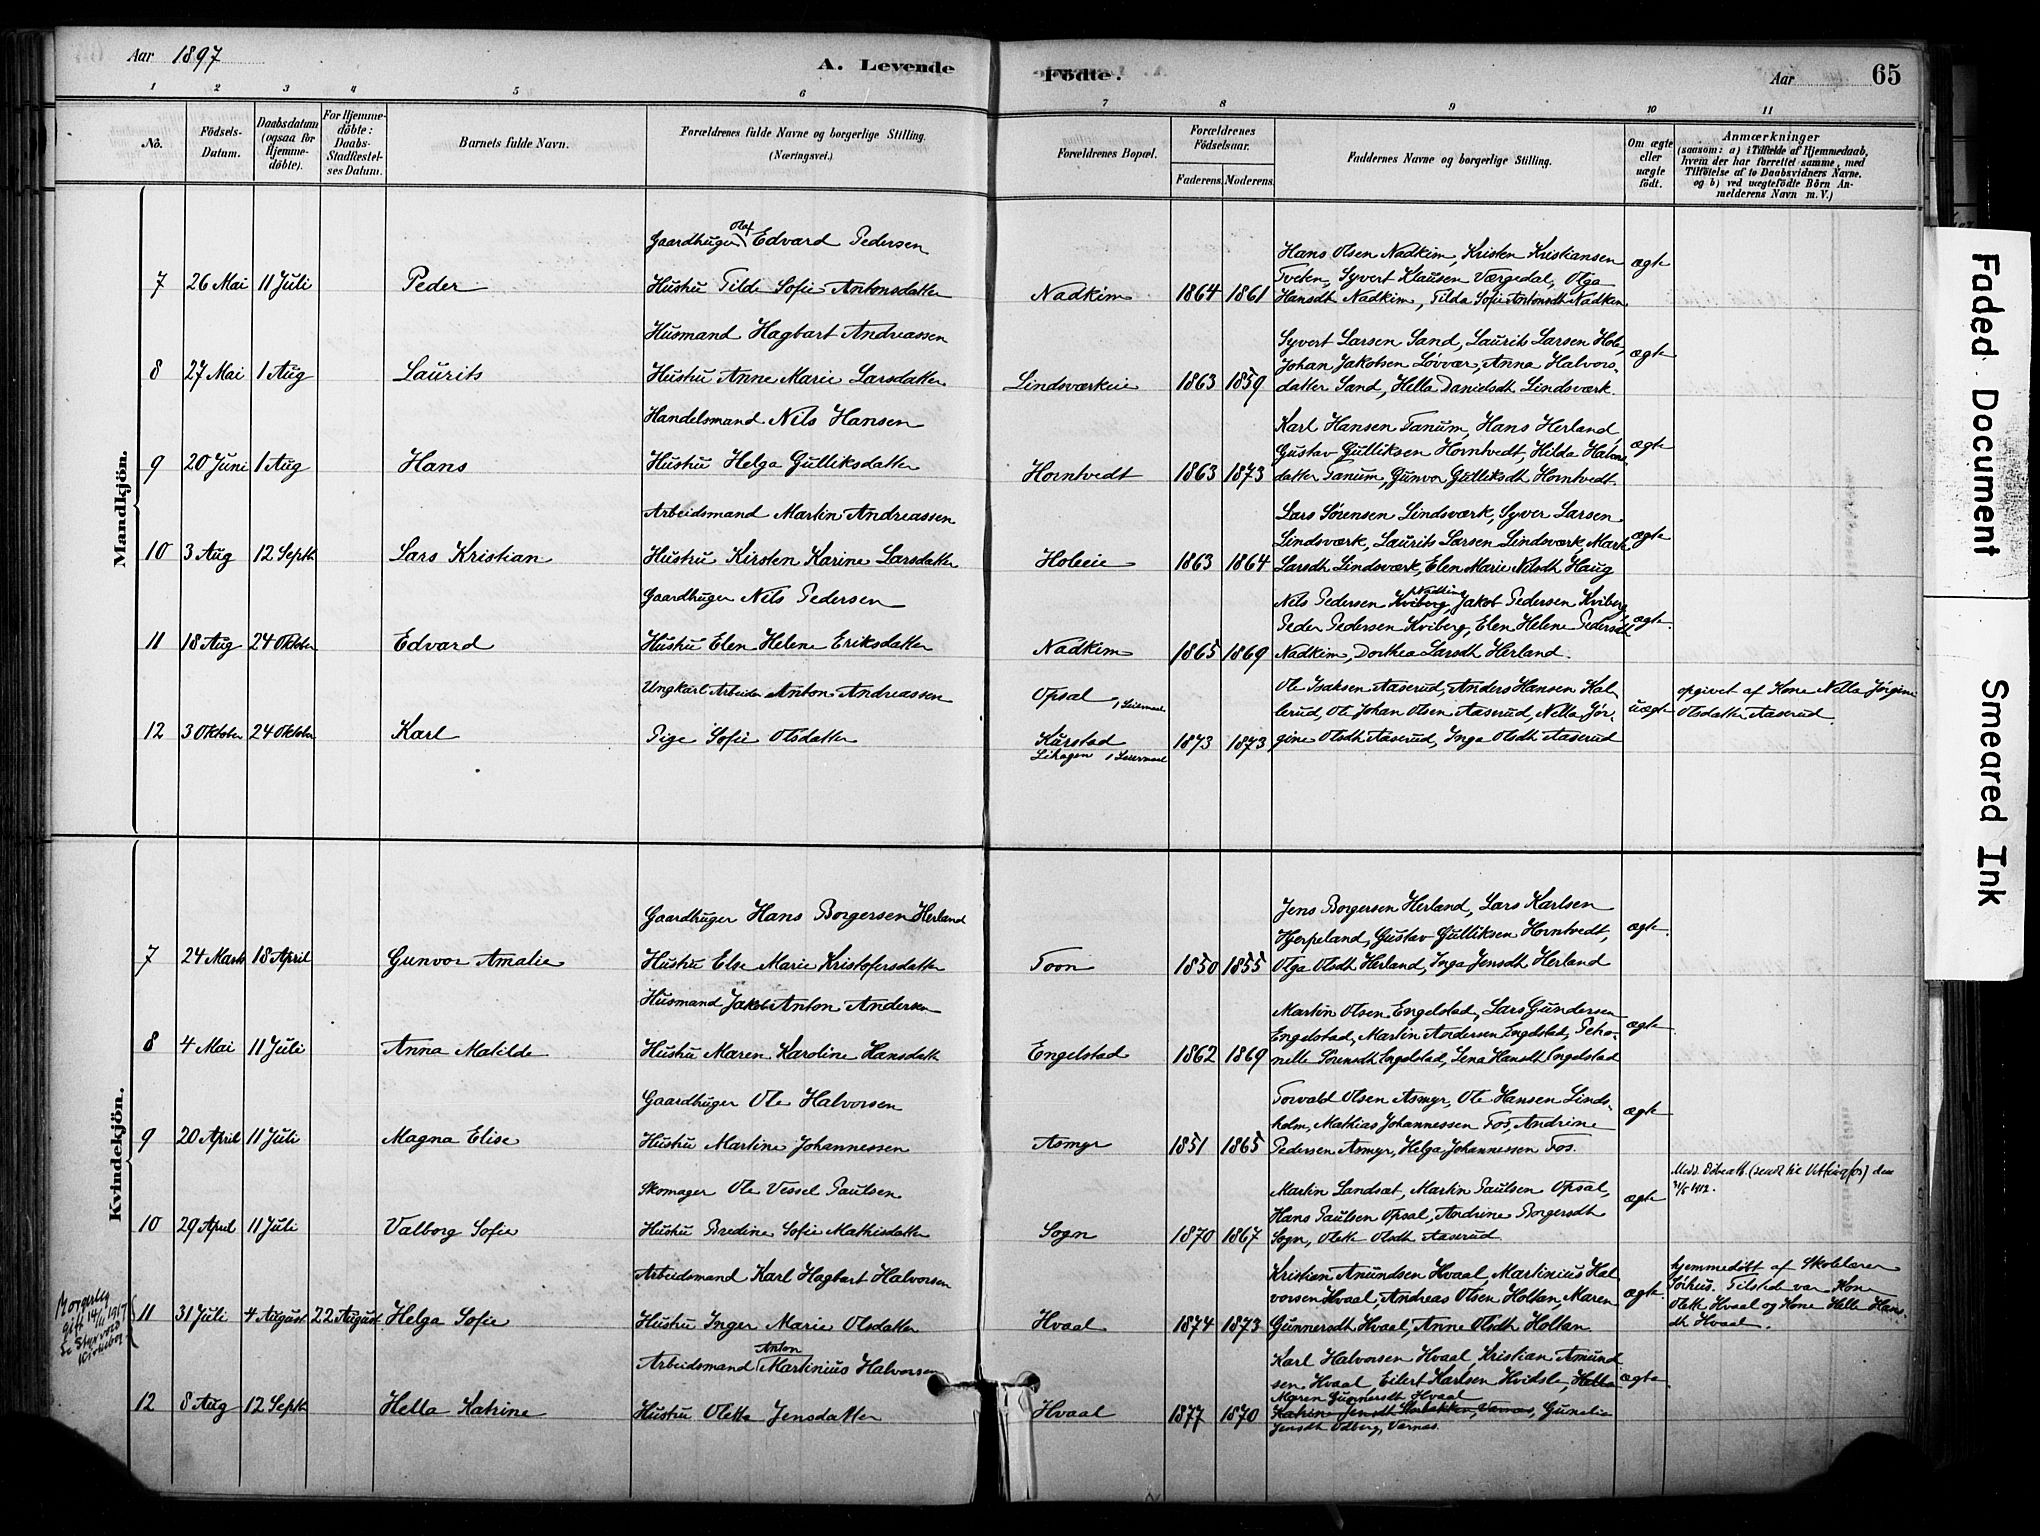 Aar 1897
A. Levende
Fødte.
Aar 65
1 2 3 4 5 6 7 8 9 10 11
No.
Födsels-Datum.
Daabsdatum (ogsaa for Hjemme-döbte).
For Hjemme-döbte: Daabs-Stadfæstel-ses Datum.
Barnets fulde Navn.
Forældrenes fulde Navne og borgerlige Stilling. (Næringsvei.)
Forældrenes Bopæl.
Forældrenes Födselsaar.
Faderens. Moderens.
Faddernes Navne og borgerlige Stilling.
Om ægte eller uægte födt.
Anmærkninger
(saasom: a) i Tilfælde af Hjemmedaab, hvem der har forrettet samme, med Tilföielse af to Daabsvidners Navne. og b) ved uægtefödte Börn An-melderens Navn m.V.)
Mandkjön.
Gaardbruger Olaf Edvard Pedersen
7 26 Mai 11 Juli Peder Hustru Tilde Sofie Antonsdatter Nadkim 1864 1861
Hans Olsen Nadkim, Kristen Kristiansen
Tveten, Syvert Klausen Værgedal, Olga
Hansdt Nadkim, Tilda Sofie Antonsdt Nadkim
ægte
Husmand Hagbart Andreassen
8 27 Mai 1 Aug Laurits Hustru Anne Marie Larsdatter Lindsværkeie 1863 1859
Syvert Larsen Sand, Laurits Larsen Hole,
Johan Jakobsen Løvvar, Anna Halvors-
datter Sand, Hella Danielsdt Lindsværk.
ægte
Handelsmand Nils Hansen
9 20 Juni 1 Aug Hans Hustru Helga Gulliksdatter Horntvedt 1863 1873
Karl Hansen Tanum, Hans Herland,
Gustav Gulliksen Horntvedt, Hilda Halvors-
datter Tanum, Gunvor Gulliksdt Horntvedt.
ægte
Arbeidsmand Martin Andreassen
10 3 Aug 12 Septb Lars Kristian Hustru Kirsten Karine Larsdatter Holeeie 1863 1864
Lars Sørensen Lindsværk, Syver Larsen
Lindsværk, Laurits Larsen Lindsværk,
Larsdt Lindsværk, Elen Marie Nilsdt Haug
ægte
Gaardbruger Nils Pedersen
11 18 Aug 24 Oktober Edvard Hustru Elen Helene Eriksdatter Nadkim 1865 1869
Nils Pedersen Kviberg, Jakob Pedersen Kviberg
Peder Pedersen Kviberg, Elen Helene Pedersdt
Nadkim, Dorthea Larsdt Herland.
ægte
Ungkarl Arbeider Anton Andreassen
12 3 Oktober 24 Oktober Karl Pige Sofie Olsdatter
Opsal 1 Leiermaal
Kurstad
Lihagen 1 Leiermaal
1873 1873
Ole Isaksen Aaserud, Anders Hansen Kal-
lerud, Ole Johan Olsen Aaserud, Nella Jør-
gine Olsdt Aaserud, Inga Olsdt Aaserud
uægte
opgivet af Kone Nella Jørgine
Olsdatter Aaserud.
Kvindekjön.
Gaardbruger Hans Borgersen Herland
7 24 Marts 18 April Gunvor Amalie Hustru Else Marie Kristofersdatter Foon 1850 1855
Jens Borgersen Herland, Lars Karlsen
Hjerpeland, Gustav Gulliksen Horntvedt,
Olga Olsdt Herland, Inga Jensdt Herland
ægte
Husmand Jakob Anton Andersen
8 4 Mai 11 Juli Anna Matilde Hustru Maren Karoline Hansdatt Engelstad 1862 1869
Martin Olsen Engelstad, Lars Gundersen
Engelstad, Martin Andersen Engelstad, Petro-
nelle Sørensdt Engelstad, Lena Hansdt Engelstad
ægte
Gaardbruger Ole Halvorsen
9 20 April 11 Juli Magna Elise Hustru Martine Johannessen Asmyr 1851 1865
Torvald Olsen Asmyr, Ole Hansen Linds-
holm, Mathias Johannessen Fos, Andrine
Pedersen Asmyr, Helga Johannessen Fos.
ægte
Skomager Ole Vessel Paulsen
10 29 April 11 Juli Valborg Sofie Hustru Bredine Sofie Mathisdatter Sogn 1870 1867
Martin Landsæt, Martin Paulsen Opsal,
Hans Paulsen Opsal, Andrine Borgersdt
Sogn, Olette Olsdt Aaserud.
ægte
Medd. Døbeatt. (sendt til Vittingfos) den
1912.
Borgerlig
gift 14/11 1917
Arbeidsmand Karl Hagbart Halvorsen
11 31 Juli 4 August 22 August Helga Sofie Hustru Inger Marie Olsdatter Hvaal 1874 1873
Kristian Amundsen Hvaal, Martinius Hal
vorsen Hvaal, Andreas Olsen Holtan, Maren
Gunnersdt Hvaal, Anne Olsdt Holtan.
ægte
hjemmedøbt af Skolelærer
Jørhus. Tilstede var Kone
Olette Hvaal og Kone Helle Hans-
dt Hvaal.
Arbeidsmand Anton Martinius Halvorsen
12 8 Aug 12 Septb Hella Katrine Hustru Oletta Jensdatter Hvaal 1877 1870
Karl Halvorsen Hvaal, Kristian Amund
sen Hvaal, Eilert Karlsen Hvidsle, Hella
Maren Gunnersdt Hvaal
Katrine Jensdt Varnas, Gunelie
Jensdt Odberg, Varnas.
ægte
Faded Document
Smeared Ink